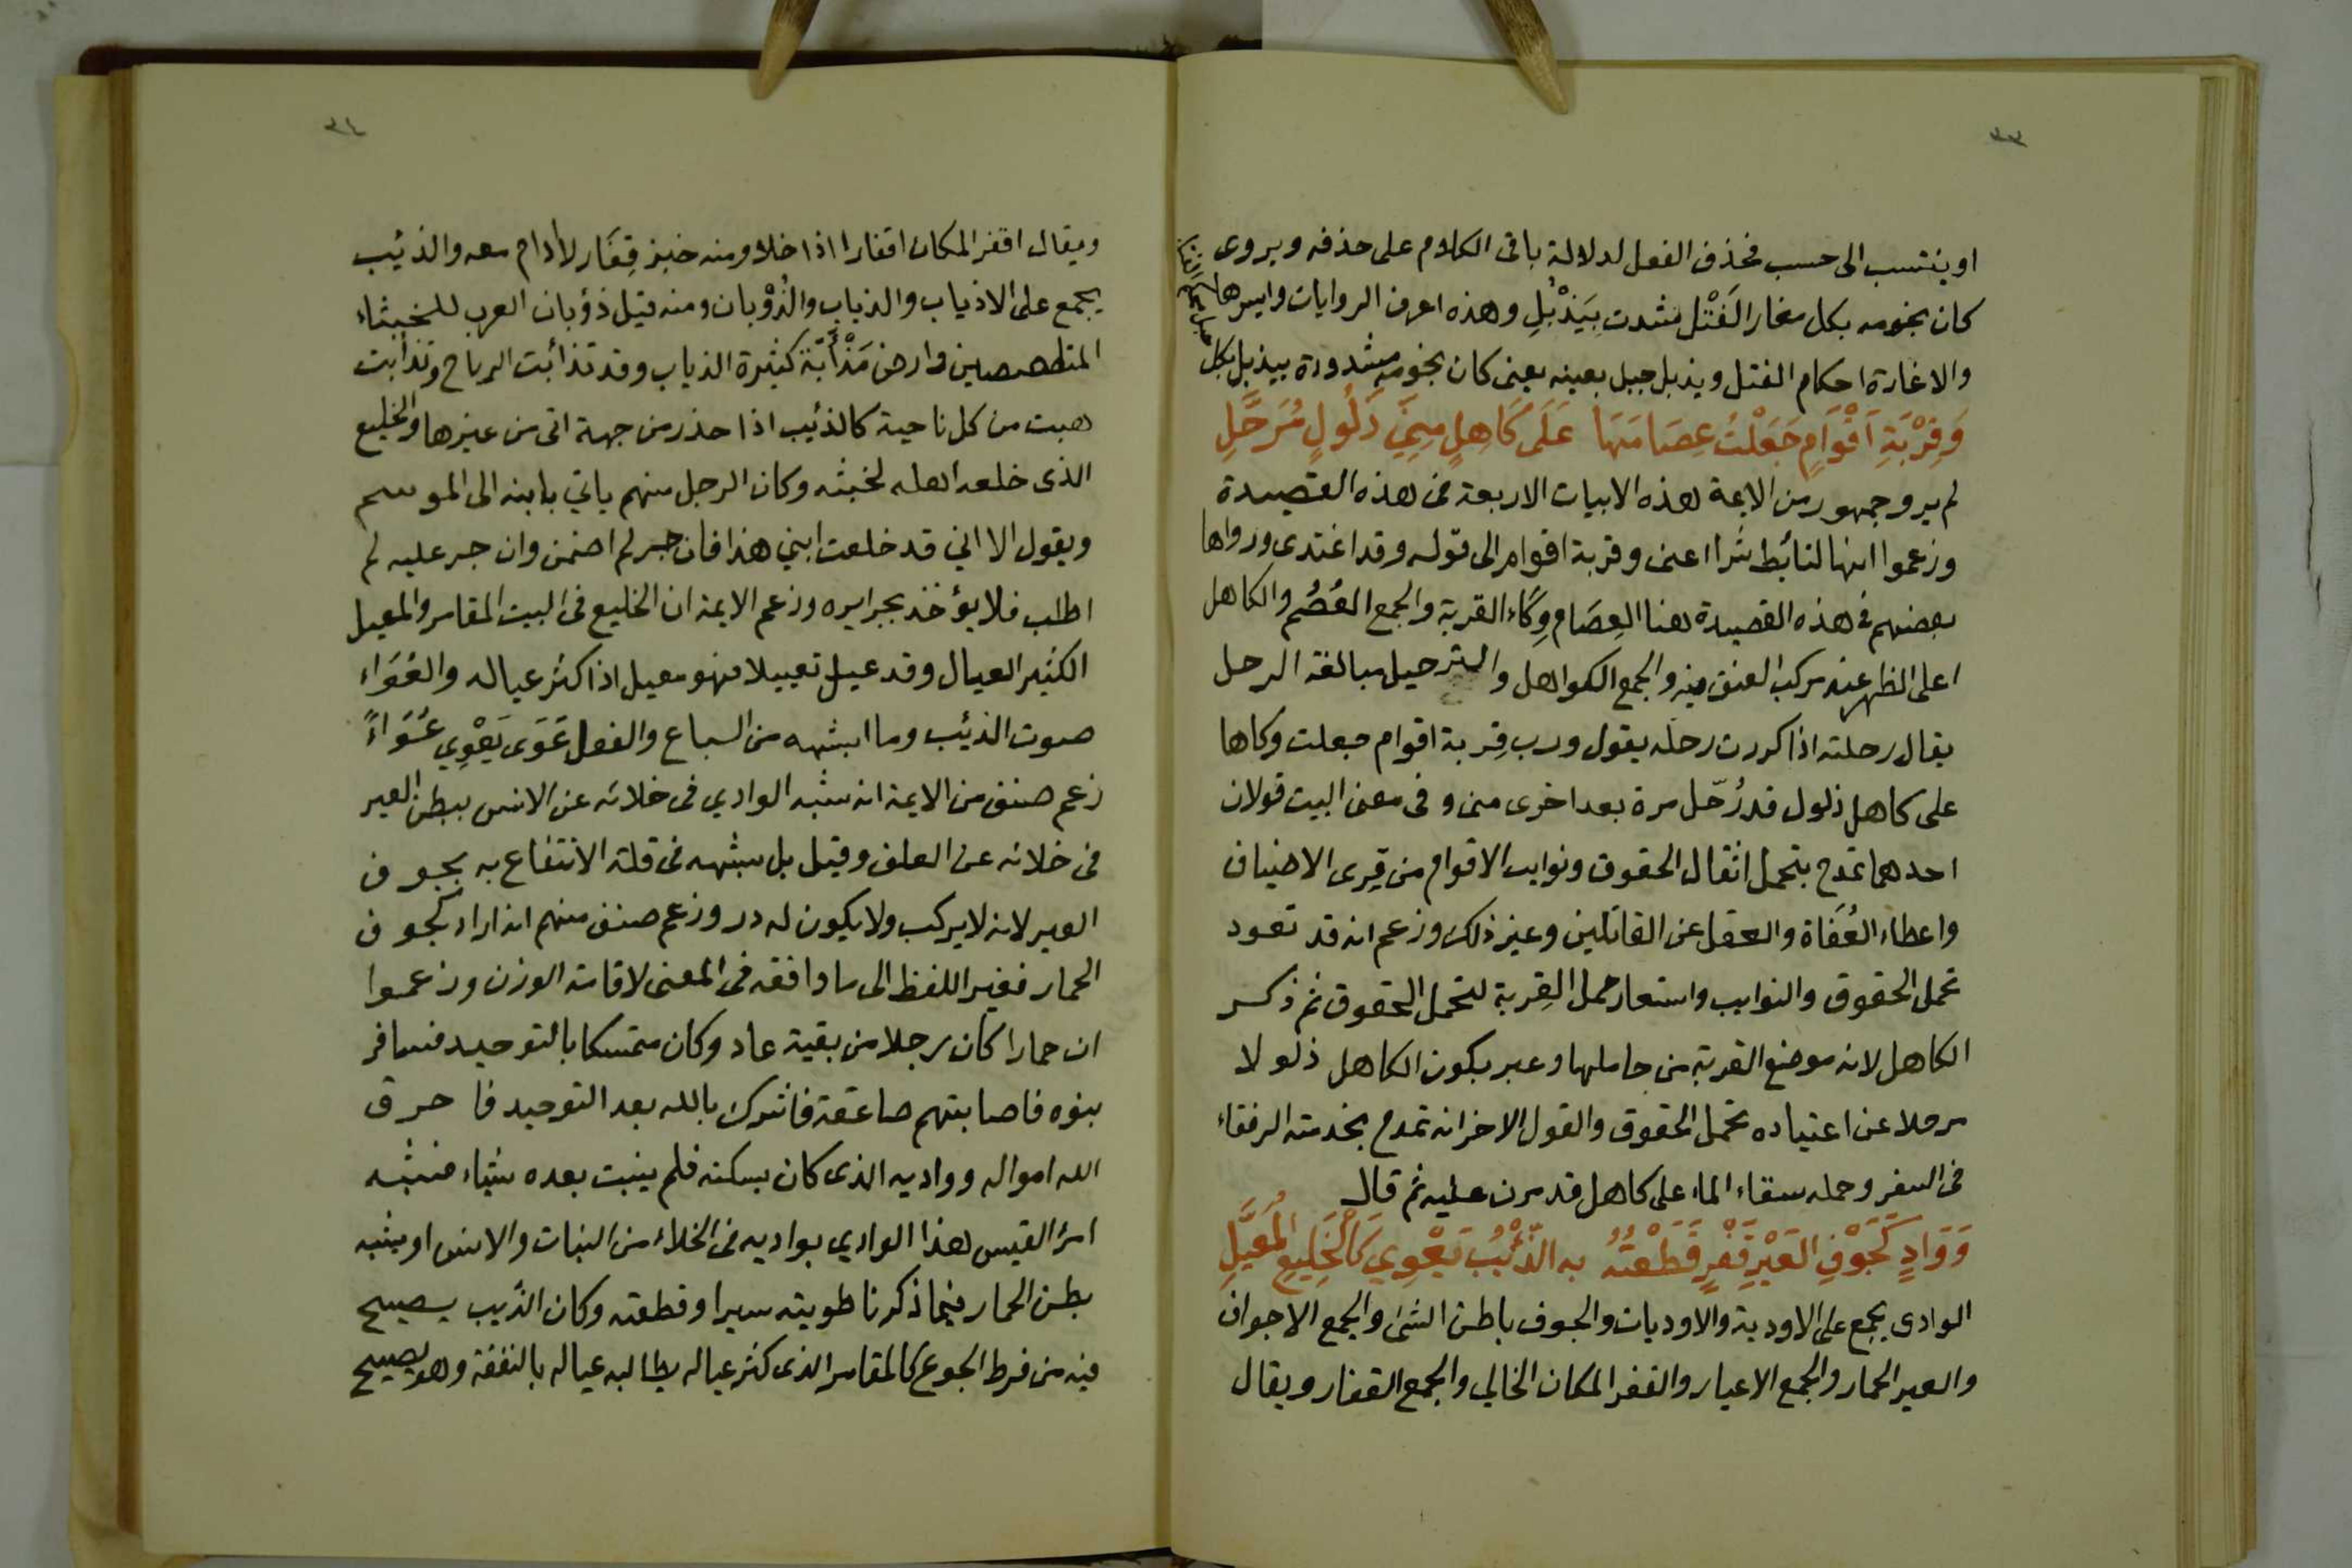 ٣٣
او ينتسب الى حسب فحذف الفعل لدلالة باقى الكلام على حذفه ويروى
كان نجومه بكل مغار الفَتْل شدت بِيَذْبُلِ وهذه اعرف الروايات وايسرها
والاغارة احكام الفتل ويذبل جبل بعينه يعنى كان نجومه مشدودة بيذبل بكل
وَقِرْبَةِ اَقْوَامٍ جَعَلْتُ عِصَامَهَا عَلَى كَاهِلٍ مِنِّي ذَلُولٍ مُرَحَّلِ
لم يرو جمهور من الايمة هذه الابيات الاربعة فى هذه القصيدة
وزعموا انها لتأبط شرا اعنى وقربة اقوام الى قوله وقد اغتدى ورواها
بعضهم فى هذه القصيدة هنا العِصَام وِكَاء القربة والجمع العُصُم والكاهل
اعلى الظهر عند مركب العنق فيه والجمع الكواهل والترحيل مبالغة الرحل
يقال رحلته اذا كررت رحله يقول ورب قِربة اقوام جعلت وكاها
على كاهل ذلول قد رُحّل مرة بعد اخرى منى وفى معنى البيت قولان
احدهما تمدح بتحمل اثقال الحقوق ونوايب الاقوام من قِرى الاضياف
واعطاء العُفَاة والعقل عن القاتلين وغير ذلك وزعم انه قد تعود
تحمل الحقوق والنوايب واستعار حمل القِربة لتحمل الحقوق ثم ذكر
الكاهل لانه موضع القربة من حاملها وعبر بكون الكاهل ذلولا
مرحلا عن اعتياده تحمل الحقوق والقول الاخر انه تمدح بخدمته الرفقاء
فى السفر وحمله سقاء الماء على كاهل قد مرن عليه ثم قال
وَوَادٍ كَجَوْفِ العَيْرِ قَفْرٍ قَطَعْتُهُ به الذِّئْبُ يَعْوِي كَالْخَلِيعِ الْمُعَيَّلِ
الوادى يجمع على الاودية والاوديات والجوف باطن الشىء والجمع الاجواف
والعير الحمار والجمع الاعيار والقفر المكان الخالي والجمع القفار ويقال
٣٤
ويقال اقفر المكان اقفارا اذا خلا ومنه خبز قِفَار لا أدام معه والذئيب
يجمع على الاذياب والذياب والذُوْبان ومنه قيل ذؤبان العرب للخبثاء
المتلصصين وارض مَذْأَبَة كثيرة الذياب وقد تذائبت الرياح وتذابت
هبت من كل ناحية كالذئيب اذا حذر من جهة اتى من غيرها والخليع
الذى خلعه اهله لخبثه وكان الرجل منهم ياتي بابنه الى الموسم
ويقول الا اني قد خلعت ابني هذا فان جر لم اضمن وان جر عليه لم
اطلب فلا يؤخذ بجرايره وزعم الايمة ان الخليع فى البيت المقامر والمعيل
الكثير العيال وقد عيل تعييلا فهو معيل اذا كثر عياله والعُوَاء
صوت الذئيب وما اشبهه من السباع والفعل عَوَى يَعْوِي عُوَاءً
زعم صنف من الايمة انه شبه الوادي فى خلائه عن الانس ببطن العير
فى خلائه عن العلف وقيل بل شبهه فى قلة الانتفاع به بجوف
العير لانه لا يركب ولا يكون له در وزعم صنف منهم انه اراد كجوف
الحمار فغير اللفظ الى ما وافقه فى المعنى لاقامة الوزن وزعموا
ان حمارا كان رجلا من بقية عاد وكان متمسكا بالتوحيد فسافر
بنوه فاصابتهم صاعقة فاشرك بالله بعد التوحيد فاحرق
الله امواله وواديه الذى كان يسكنه فلم ينبت بعده شياء فشبه
امرؤ القيس هذا الوادي بواديه فى الخلاء من النبات والانس اويشبه
بطن الحمار فيما ذكرنا طويته سيرا وقطعته وكان الذيب يصيح
فيه من فرط الجوع كالمقامر الذى كثر عياله يطالبه عياله بالنفقة وهو يصيح